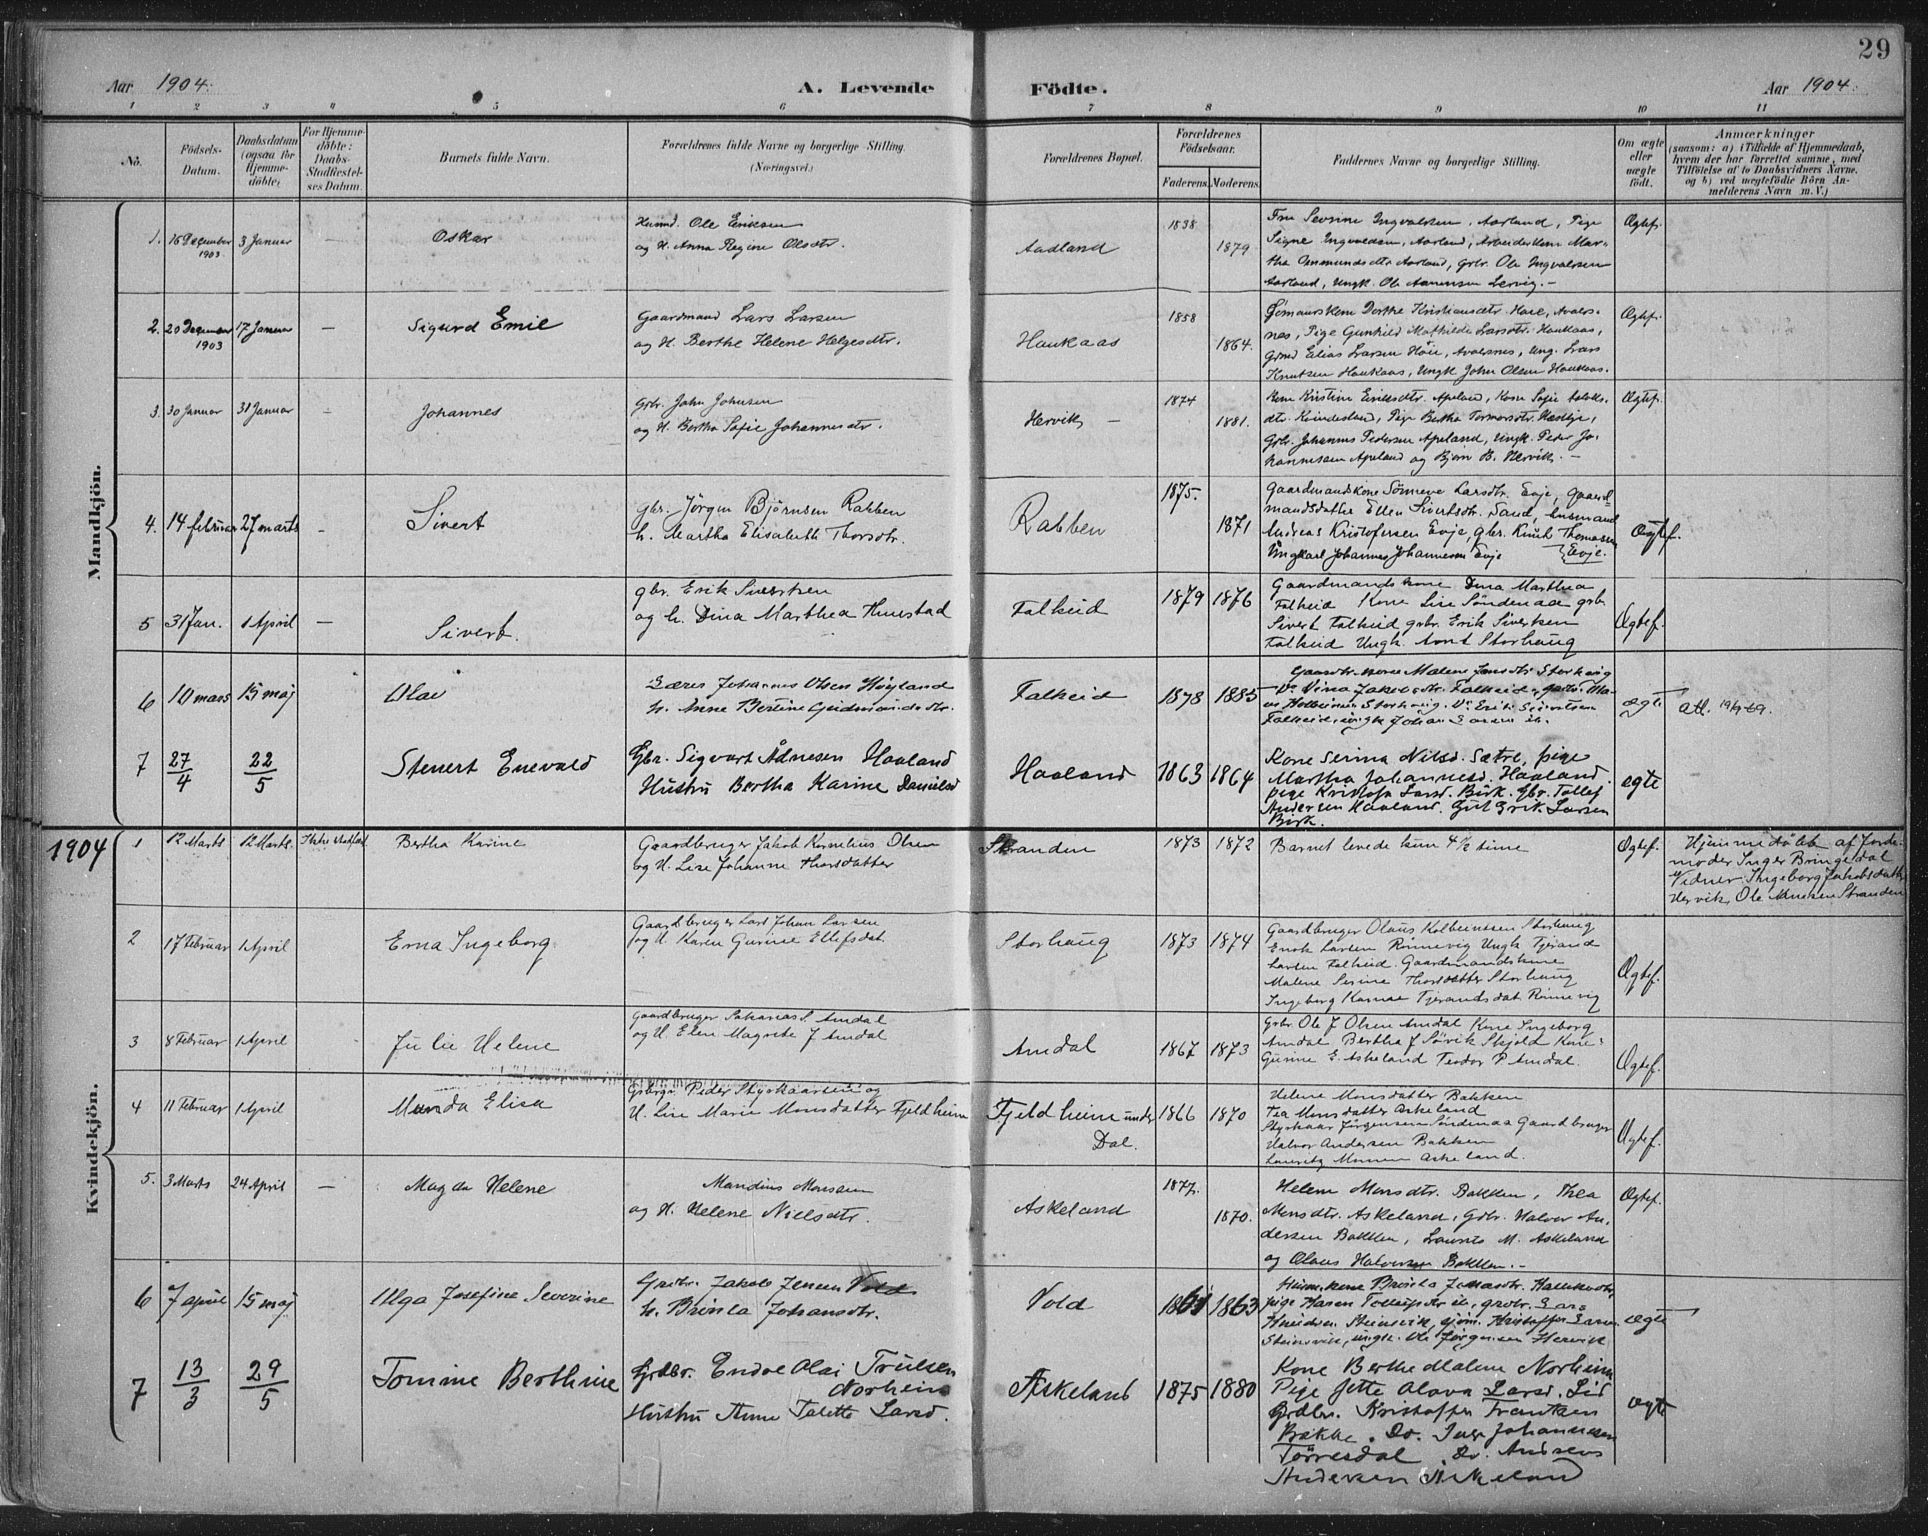 29
Aar 1904.
A. Levende Födte.
Aar 1904.
1 2 3 4 5 6 7 8 9 10 11
No.
Födsels-
Datum.
Daabsdatum
(ogsaa for
Hjemme-
döbte;
For Hjemme-
döbte:
Daabs-
Stadfæstel-
ses Datum.
Barnets fulde Navn.
Forældrenes fulde Navne og borgerlige Stilling.
(Næringsvei.)
Forældrenes Bopæl.
Forældrenes
Födselsaar.
Faderens. Moderens.
Faddernes Navne og borgerlige Stilling.
Om ægte
eller
uægte
födt.
Anmærkninger
(saasom: a) i Tilfælde af Hjemmedaab,
hvem der har forrettet samme, med
Tilföielse af to Daabsvidners Navne.
og b) ved uægtefödte Börn An-
melderens Navn m. V.)
Mandkjön.
1. 16 December 1903 3 Januar — Oskar
Husmd. Ole Eriksen
og H. Anna Regine Olsdtr.
Aadland 1838 1879
Fru Sevrine Ingvaldsen, Aarland, Pige
Signe Ingvaldsen, Aarland, Arbeiderkone Mar-
tha Ommundsdtr. Aarland, Gbr. Ole Ingvalsen
Aarland, Ungk. Ole Aanensen Lervig. —
Ægtef.
2. 20 December 1903 17 Januar — Sigurd Emil
Gaardmand Lars Larsen
og H. Berthe Helene Helgesdtr.
Haukaas 1858 1864.
Dorthe Kristiansdtr. Hare, Avals-
nes, Pige Gunhild Mathilde Larsdtr. Haukaas,
Grmd Elias Larsen Höie, Avalsnes, Ung. Lars
Knutsen Haukaas, Ungk John Olsen Haukaas.
Ægtef.
3. 30 Januar 31 Januar — Johannes
Gbr. John Johnsen
og H. Bertha Sofie Johannesdtr.
Hervik — 1874 1881.
Kone Kristine Eriksdtr. Apeland, Kone Sofie
dtr. Kvindesland, Pige Bertha Tormorsdtr.
Gbr. Johannes Pedersen Apeland, Ungk. Peder Jo-
hannesen Apeland og Bjørn B. Hervik. —
Ægtef.
4. 14 februar 27 marts — Sivert
gbr. Jörgen Björnsen Rabben
h. Martha Elisabeth Thorsdtr.
Rabben 1875. 1871
Gaardmandskone Sönneve Larsdtr. Evje, gaard-
mandsdatter Ellen Sivertsdtr. Sand, husmand
Andreas Kristofersen Evje, gbr. Knut Thomasen
Ungkarl Johannes Johannesen Evje Evje.
Ægtef.
5 31 Jan. 1 April — Sivert.
gbr. Erik Sivertsen
og h. Dina Marthea Thuestad
Falheid 1879 1876
Gaardmandskone Dina Marthea
Falheid Kone Lise Söndenaa gbr.
Sivert Falheid gbr. Erik Sivertsen
Falheid Ungk. Aant Storhaug
Ægtef.
6 10 mars 15 maj Olav
Lærer Johannes Olsen Höyland
h. Anne Bertine Gudmundsdtr.
Falheid 1878 1885
Gaardbr. kone Malene Jansdtr. Storhaug
Do Dina Jakobsdtr. Falheid, gardbr.
Kolbeinsen Storhaug. Do Erik Sivertsen
Falheid, ungk. Johan Larsen ib.
ægte
att. 19/9-69.
7 27/4 22/5 Stenert Enevald
Gbr. Sigvart Ådnesen Haaland
Hustru Bertha Karine Danielsd
Haaland 1863 1864
Kone Serina Nilsd. Sætre, pige
Martha Johannesd. Haaland.
pige Kristofa Larsd. Birk. Gbr. Tollef
Andersen Haaland. Gut Erik Larsen
Birk.
egte
1904
Kvindekjön.
1 12 Marts 12 Marts. Bertha Karine
Gaardbruger Jakob Kornelius Olsen
og H. Lise Johanne Thorsdatter
Stranden 1873 1872
Barnet levede kun 4½ time
Ægtef.
Hjemmedöbt af Jorde-
moder Inger Bringedal
Vidner: Ingeborg Jakobsdatter
Hervik, Ole Monsen Stranden
2 17 Februar 1 April Erna Ingeborg
Gaardbruger Lars Johan Larsen
og H. Karen Gurine Ellefsdat.
Storhaug 1873 1874
Gaardbruger Olaus Kolbeinsen Storhaug
Enok Larsen Rönnevig Ungk Tjerand
Larsen Falheid. Gaardmandskone
Malene Serine Thorsdatter Storhaug
Ingeborg Karine Tjerandsdat Rönnevig
Ægtef.
3 8 Februar 1 April Julie Helene
Gaardbruger Sakarias S. Amdal
og H. Elen Magrete J Amdal
Amdal 1867 1873
Gbr. Ole J Olsen Amdal Kone Ingeborg
Amdal Bertha J Sövik Skjold Kone
Gurine E. Askeland Teodor P. Amdal.
Ægtef.
4 11 Februar 1 April Manda Elisa
Gbrger Peder Styrkaarsen og
H. Lise Marie Monsdatter Fjeldheim
Fjeldheim under
Dal.
1866 1870
Helene Monsdatter Bakken
Tea Monsdatter Askeland
Styrkaar Jörgensen Söndenaa Gaardbruger
Halvor Andersen Bakken
Lauritz Monsen Askeland.
Ægtef.
5. 3 Marts 24 April — Magda Helene
Mandius Monsen
og H. Helene Nielsdtr.
Askeland 1877. 1870.
Helene Monsdtr. Bakken, Thea
Monsdtr. Askeland, Gdbr. Halvor An-
dersen Bakken, Laurits M. Askeland
og Olaus Halvorsen Bakken. —
Ægtef.
6 7 april 15 maj Olga Josefine Severine
Grdbr. Jakob Jensen Vold
h. Brönla Johansdtr.
Vold 1861 1863
Husm.kone Brönla Jonasdtr.
pige Hanen Tollefsdtr ib., grdbr. Lars
Steinsvik, Kristoffer Larsen
Steinsvik, ungk. Ole Jørgensen Hervik
ægte
7 13/3 29/5 Tomine Berthine
Grdbr. Endre Olai Trulsen
Norheim
Hustru Anne Talette Larsd.
Askeland 1875 1880
Kone Berthe Malene Norheim
Pige Jette Olava Larsd. Lid
Grdbr. Kristoffer Frantsen
Bakke. Do. Johannesen
Törresdal. Do. Andreas
Andersen Askeland
ægte